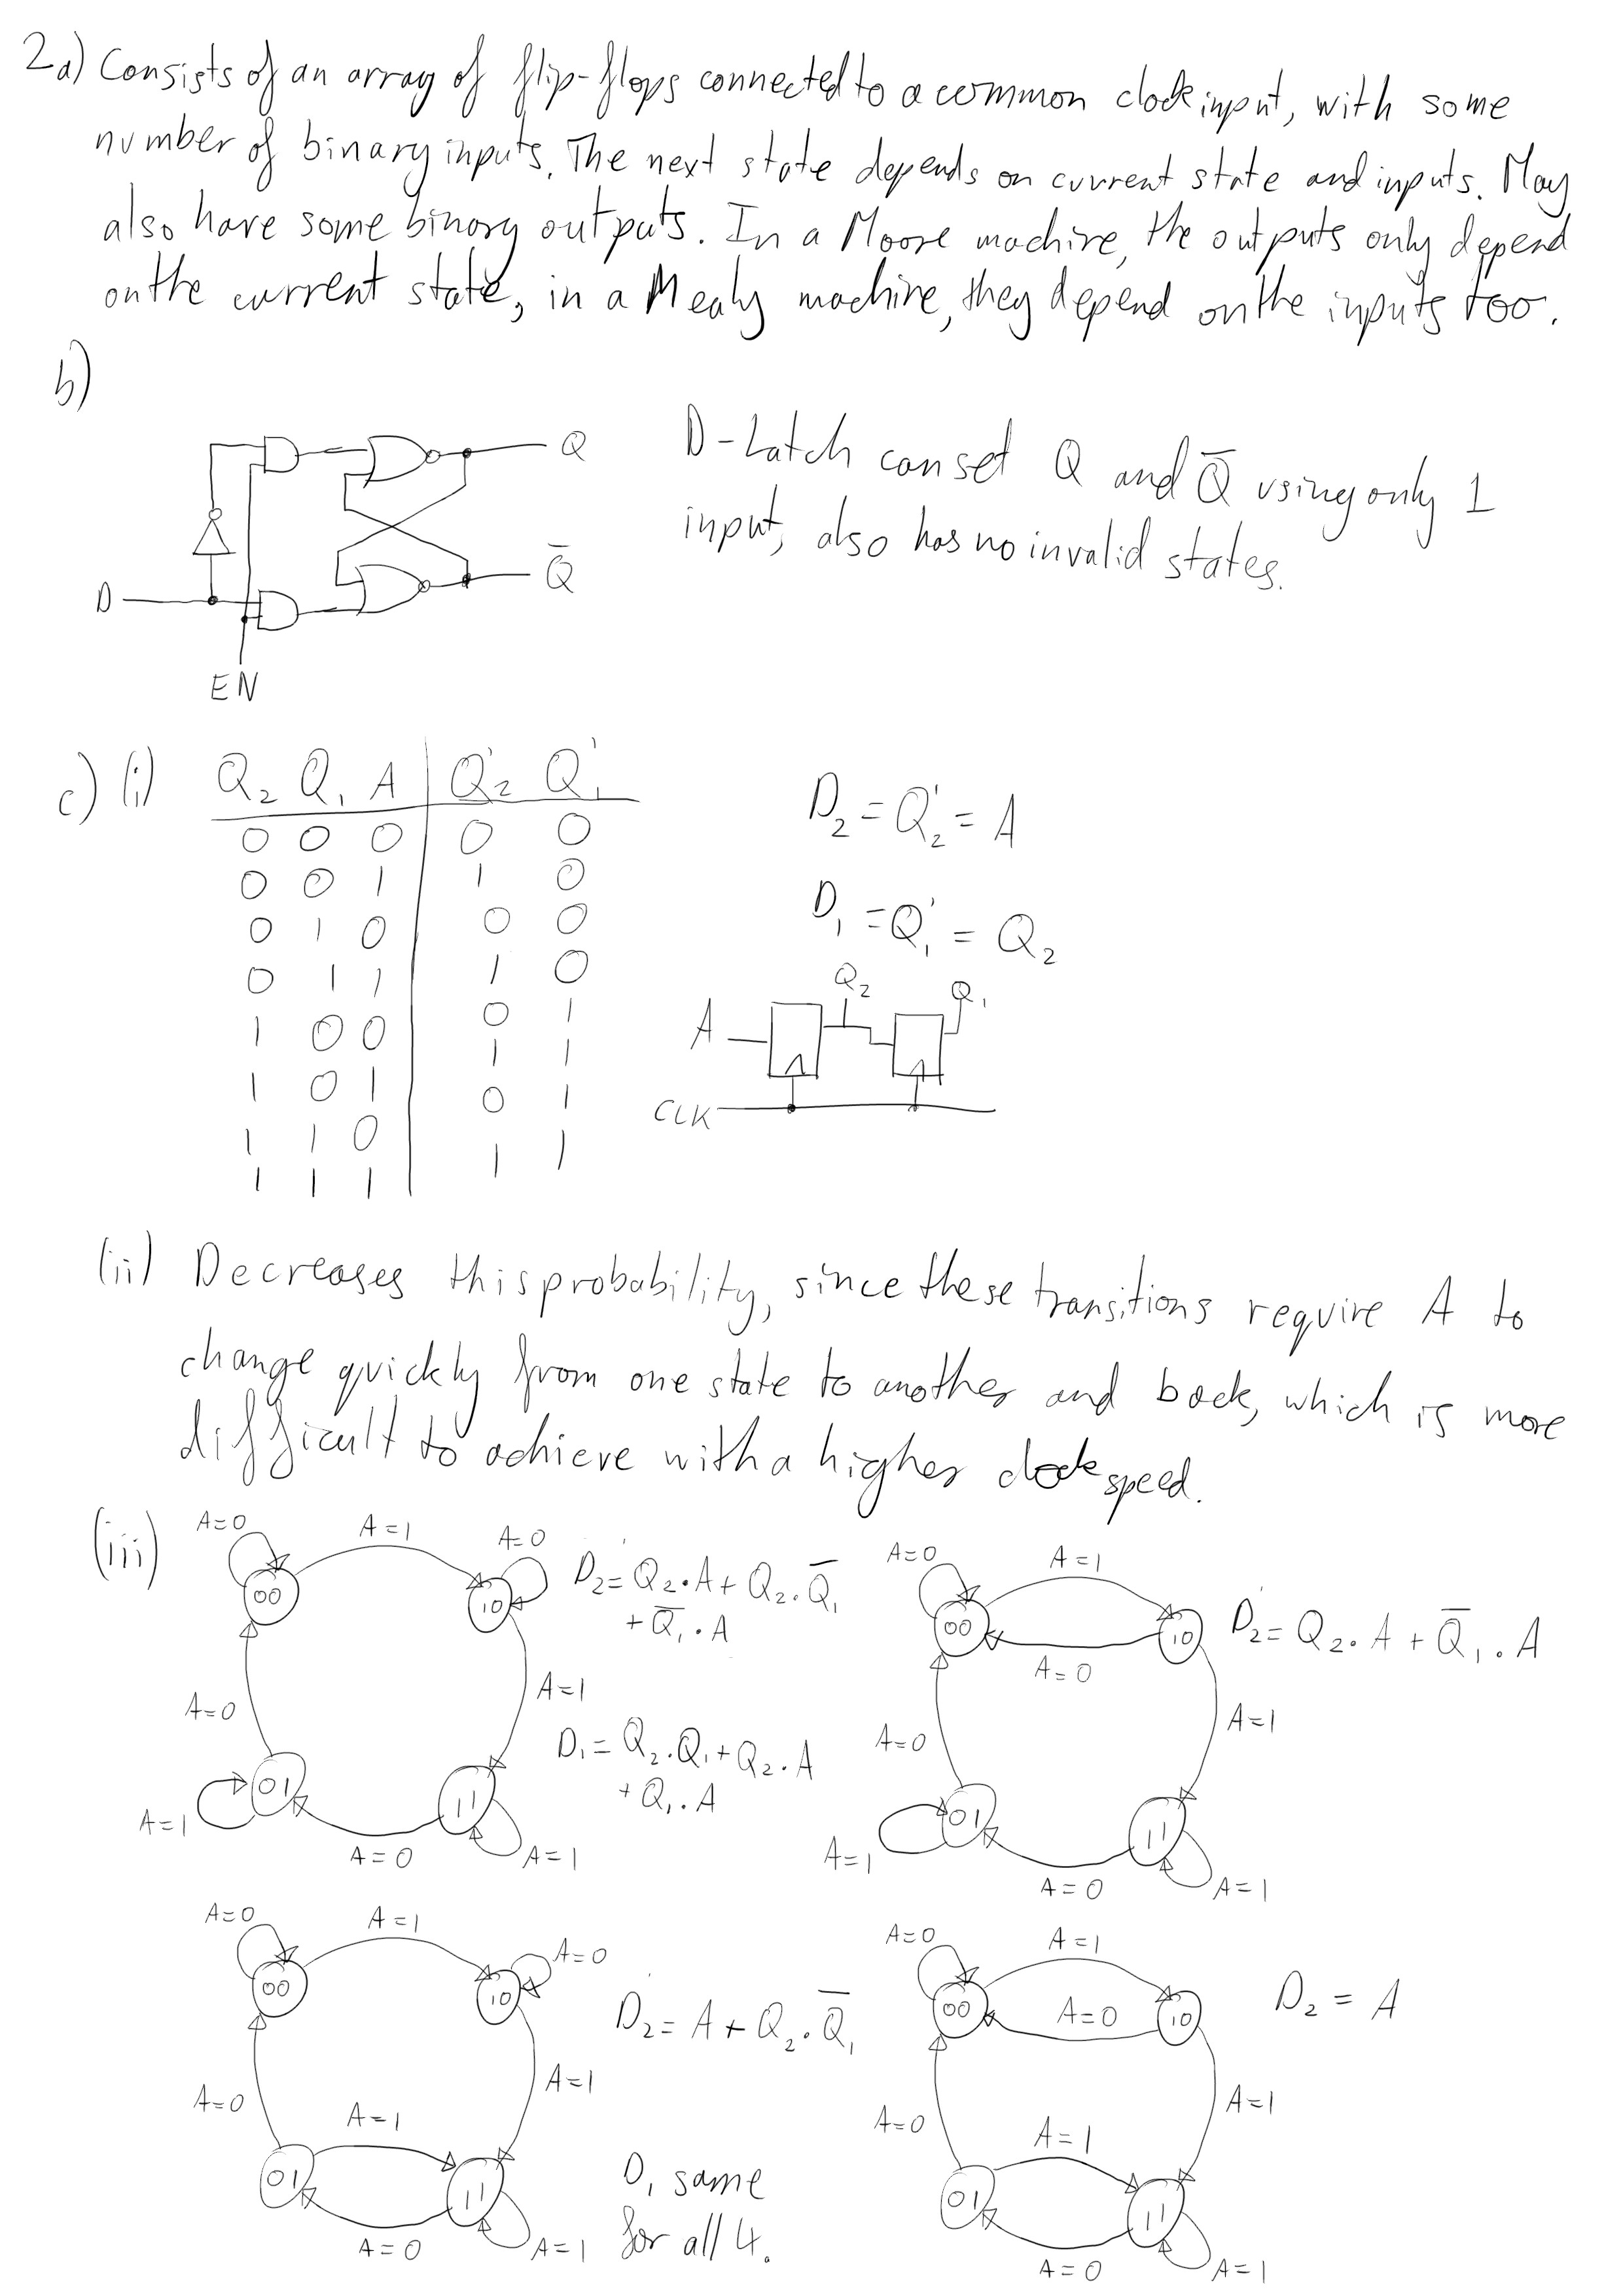 2a) Consists of an array of flip-flops connected to a common clock input, with some
number of binary inputs. The next state depends on current state and inputs. May
also have some binary outputs. In a Moore machine, the outputs only depend
on the current state, in a Mealy machine, they depend on the inputs too.
b)
Q
D-Latch can set Q and Q̅ using only 1
input, also has no invalid states.
Q̅
D
EN
c) (i) Q₂ Q₁ A Q₂' Q₁'
0 0 0 0 0
0 0 1 1 0
0 1 0 0 0
0 1 1 1 0
1 0 0 0 1
1 0 1 1 1
1 1 0 0 1
1 1 1 1 1
D₂ = Q₂' = A
D₁ = Q₁' = Q₂
Q₂ Q₁
A
CLK
(ii) Decreases this probability, since these transitions require A to
change quickly from one state to another and back, which is more
difficult to achieve with a higher clock speed.
(iii)
A=0 A=1 A=0
00 10
D₂ = Q₂·A + Q₂·Q̅₁
+ Q̅₁·A
A=0 A=1
D₁ = Q₂·Q₁ + Q₂·A
+ Q₁·A
01 11
A=1 A=0 A=1
A=0 A=1
00 10
A=0
D₂ = Q₂·A + Q̅₁·A
A=0 A=1
01 11
A=1 A=0 A=1
A=0 A=1 A=0
00 10
D₂ = A + Q₂·Q̅₁
A=0 A=1
A=1
01 11
A=0 A=1
D₁ same
for all 4.
A=0 A=1
00 A=0 10
D₂ = A
A=0 A=1
A=1
01 11
A=0 A=1